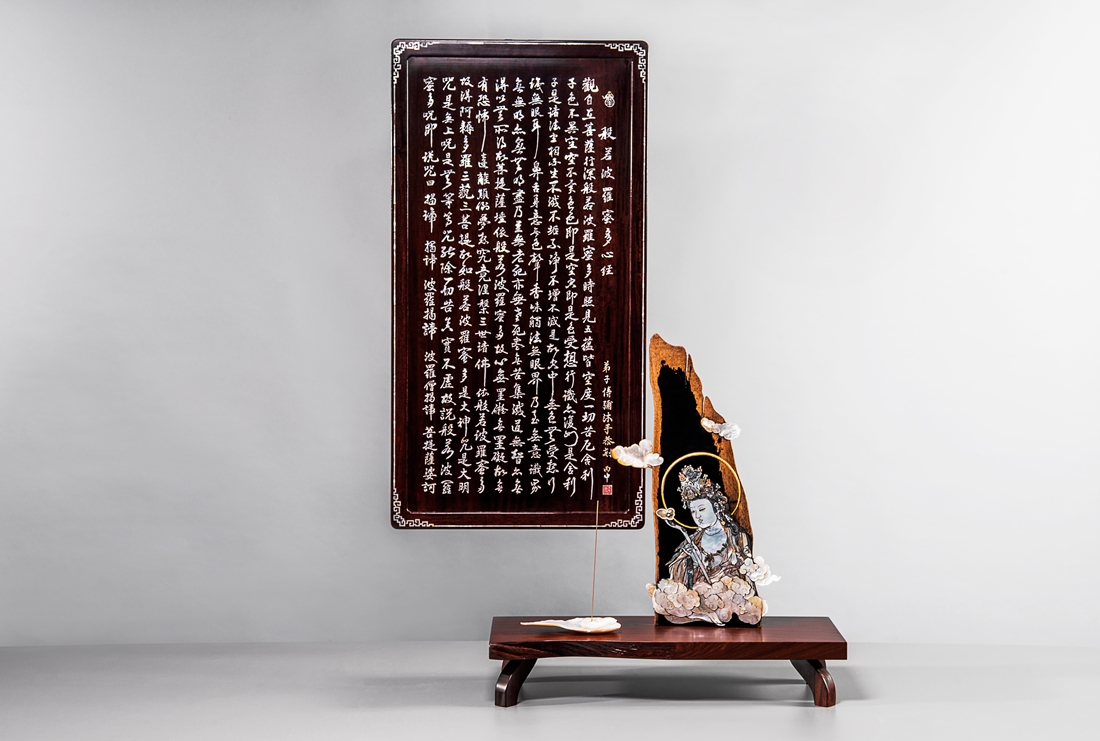 般若波羅蜜多心经
觀自在菩薩行深般若波羅蜜多時照見五蘊皆空度一切苦厄舍利
子色不異空空不異色色即是空空即是色受想行識亦復如是舍利
子是諸法空相不生不滅不垢不淨不增不減是故空中無色無受想行
識無眼耳鼻舌身意無色聲香味觸法無眼界乃至無意識界
無無明亦無無明盡乃至無老死亦無老死盡無苦集滅道無智亦無
得以無所得故菩提薩埵依般若波羅蜜多故心無罣礙無罣礙故無
有恐怖遠離顛倒夢想究竟涅槃三世諸佛依般若波羅蜜多
故得阿耨多羅三藐三菩提故知般若波羅蜜多是大神咒是大明
咒是無上咒是無等等咒能除一切苦真實不虛故說般若波羅
蜜多咒即說咒曰 揭諦 揭諦 波羅揭諦 波羅僧揭諦 菩提薩婆訶
弟子傅沐手恭刻 丙申